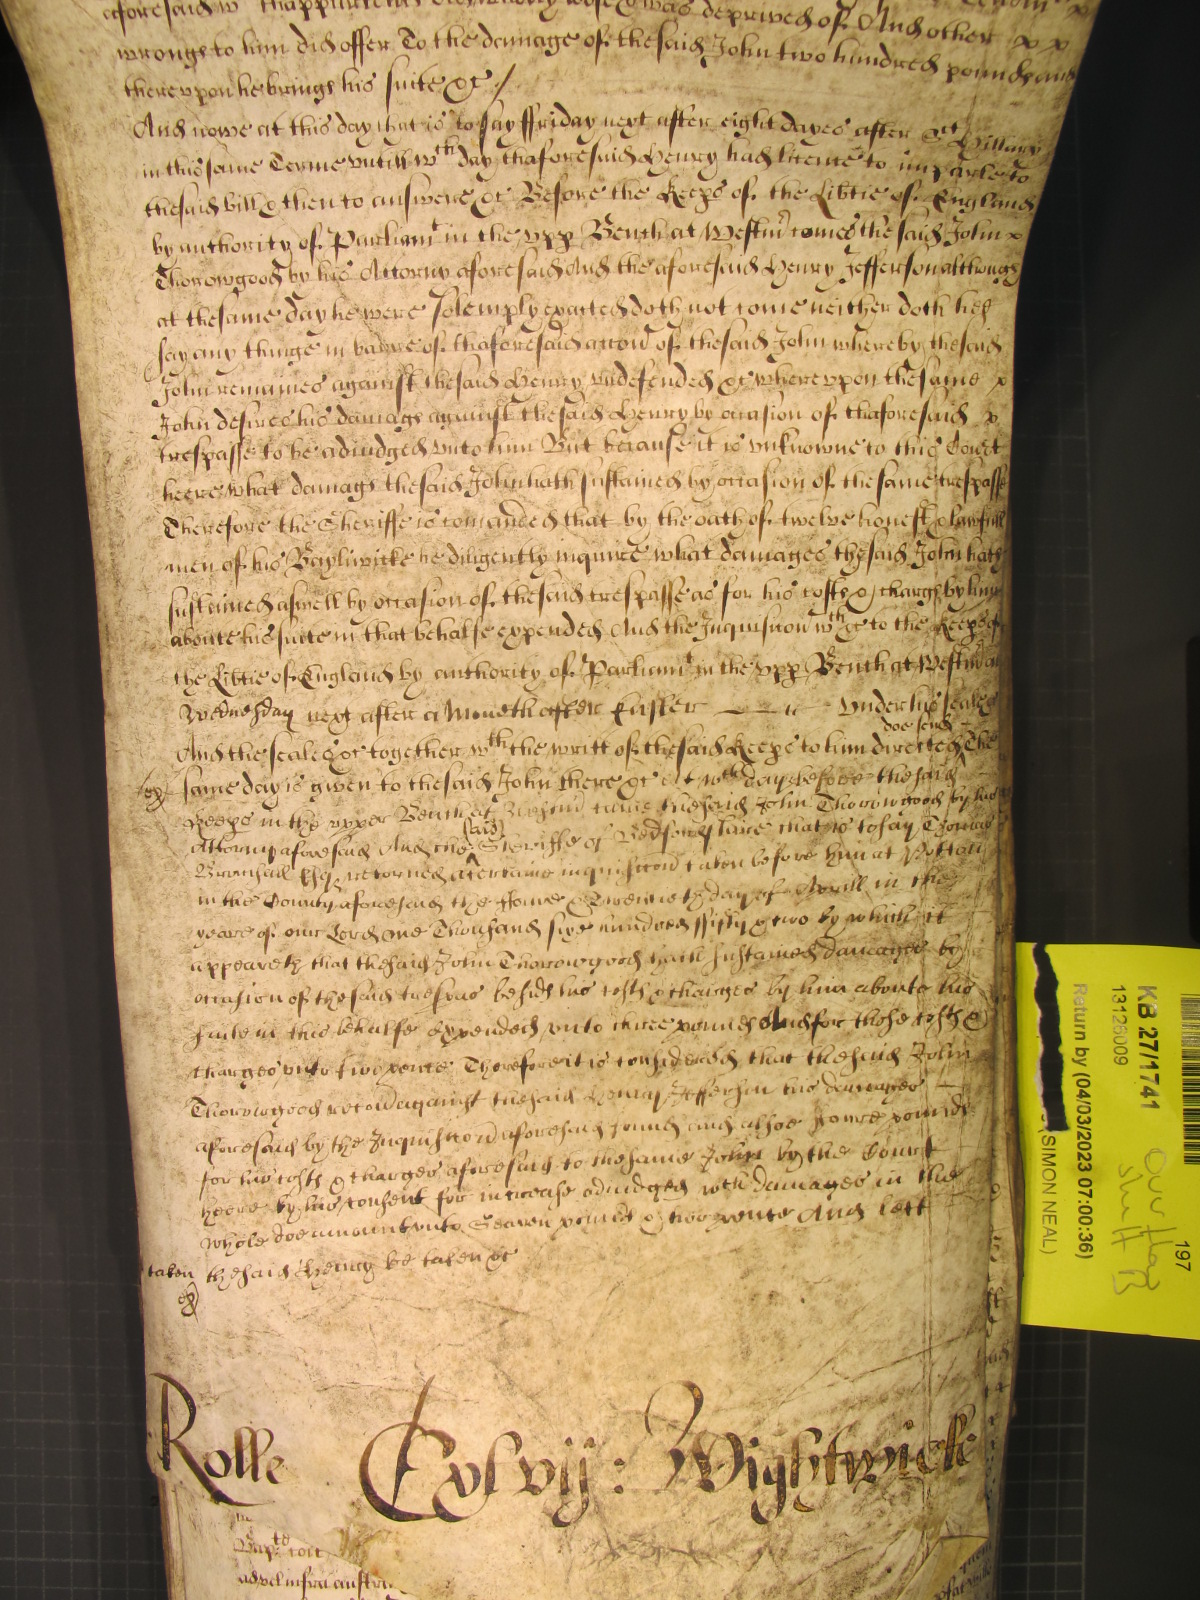 aforesaid wth thappurtenances
deprived of And other x x
wrongs to him did offer To the damage of thesaid John two hundred pounds and
therevpon he brings his suite &c /
And nowe at this day that is to say ffriday next after eight dayes after St Hillary
in this same Terme vntill wch day thaforesaid Henry had licence to imparle to
thesaid bill & then to answere &c Before the Keeps of the Libtie of England
by authority of Parliamt in the vpp Bench at Westmr comes the said John x
Thorowgood by his Attorny aforesaid And the aforesaid Henry Jefferson although
at thesame day he were solemply exacted doth not come neither doth hee
say any thinge in barre of thaforesaid accon of thesaid John whereby thesaid
John remaines against thesaid Henry vndefended &c wherevpon thesame x
John desires his damags against thesaid Henry by occasion of thaforesaid x
trespasse to be adiudged vnto him But because it is vnknowne to this Court
heere what damags thesaid John hath sustained by occasion of thesame trespasse
Therefore the Sheriffe is comanded that by the oath of twelve honest & lawfull
men of his Bayliwicke he diligently inquire what damages thesaid John hath
sustained aswell by occasion of thesaid trespasse as for his costs & chargs by him
aboute his suite in that behalfe expended And the Inquisicon wch &c to the Keeps of
the Libtie of England by authority of Parliamt in the vpp Bench at Westmr on
Wednesday next after a Moneth after Easter — — vnder his seale
doe send
And the seales &c together wth the writt of thesaid Keeps to him directed The
same day is given to thesaid John there &c At wch day before thesaid
Keeps in the vpper Bench at Westmr came thesaid John Thorowgood by his
Attorny aforesaid And the Sheriffe of Bedfordshire that is to say Thomas
said
Esqr returned a certaine inquisicon taken before him at Potton
in the County aforesaid the ffower & Twentieth day of Aprill in the
yeare of our Lord one Thousand sixe hundred ffifty & two by which it
appeareth that thesaid John Thorowgood hath sustained damages by
occasion of thesaid trespas besids his costs & charges by him aboute his
suite in this behalfe expended vnto three pounds And for those costs &
charges vnto two pence Therefore it is considered that thesaid John
Thorowgood recover against thesaid Henry Jefferson his damages
aforesaid by the Inquisicon aforesaid found and alsoe fowre pounds
for his costs & charges aforesaid to thesame John by the Court
heere by his consent for increase adiudged wch damages in the
whole doe amount vnto Seaven pounds & two pence And lett
taken thesaid Henry be taken &c
Rolle Cxlvij: Wightwicke
KB 27/1741
13126009
Return by (04/03/2023 07:00:36)
(SIMON NEAL)
197